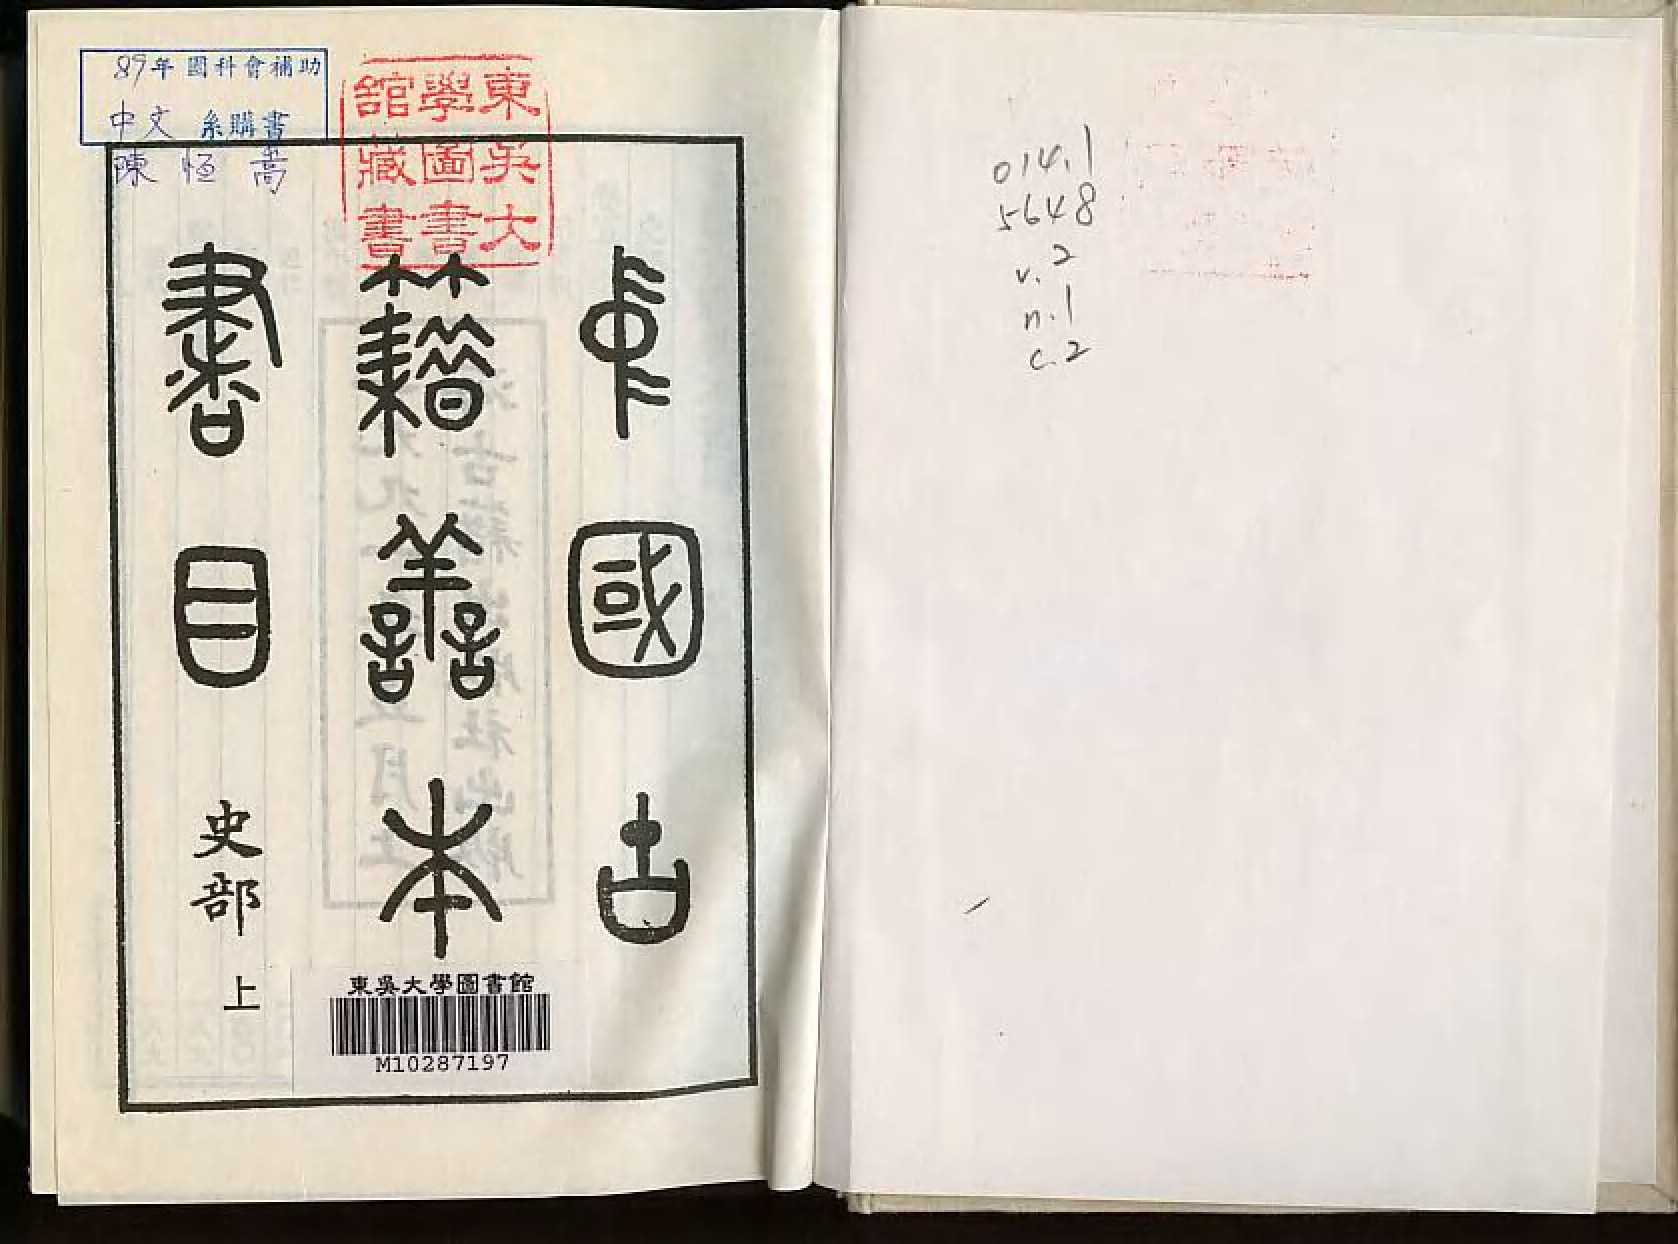 89年國科會補助
中文系購書
陳恒嵩
東吳大
學圖書
館藏書
中國古
籍善本
書目
史部
上
東吳大學圖書館
M10287197
014.1
5648
v.2
n.1
c.2